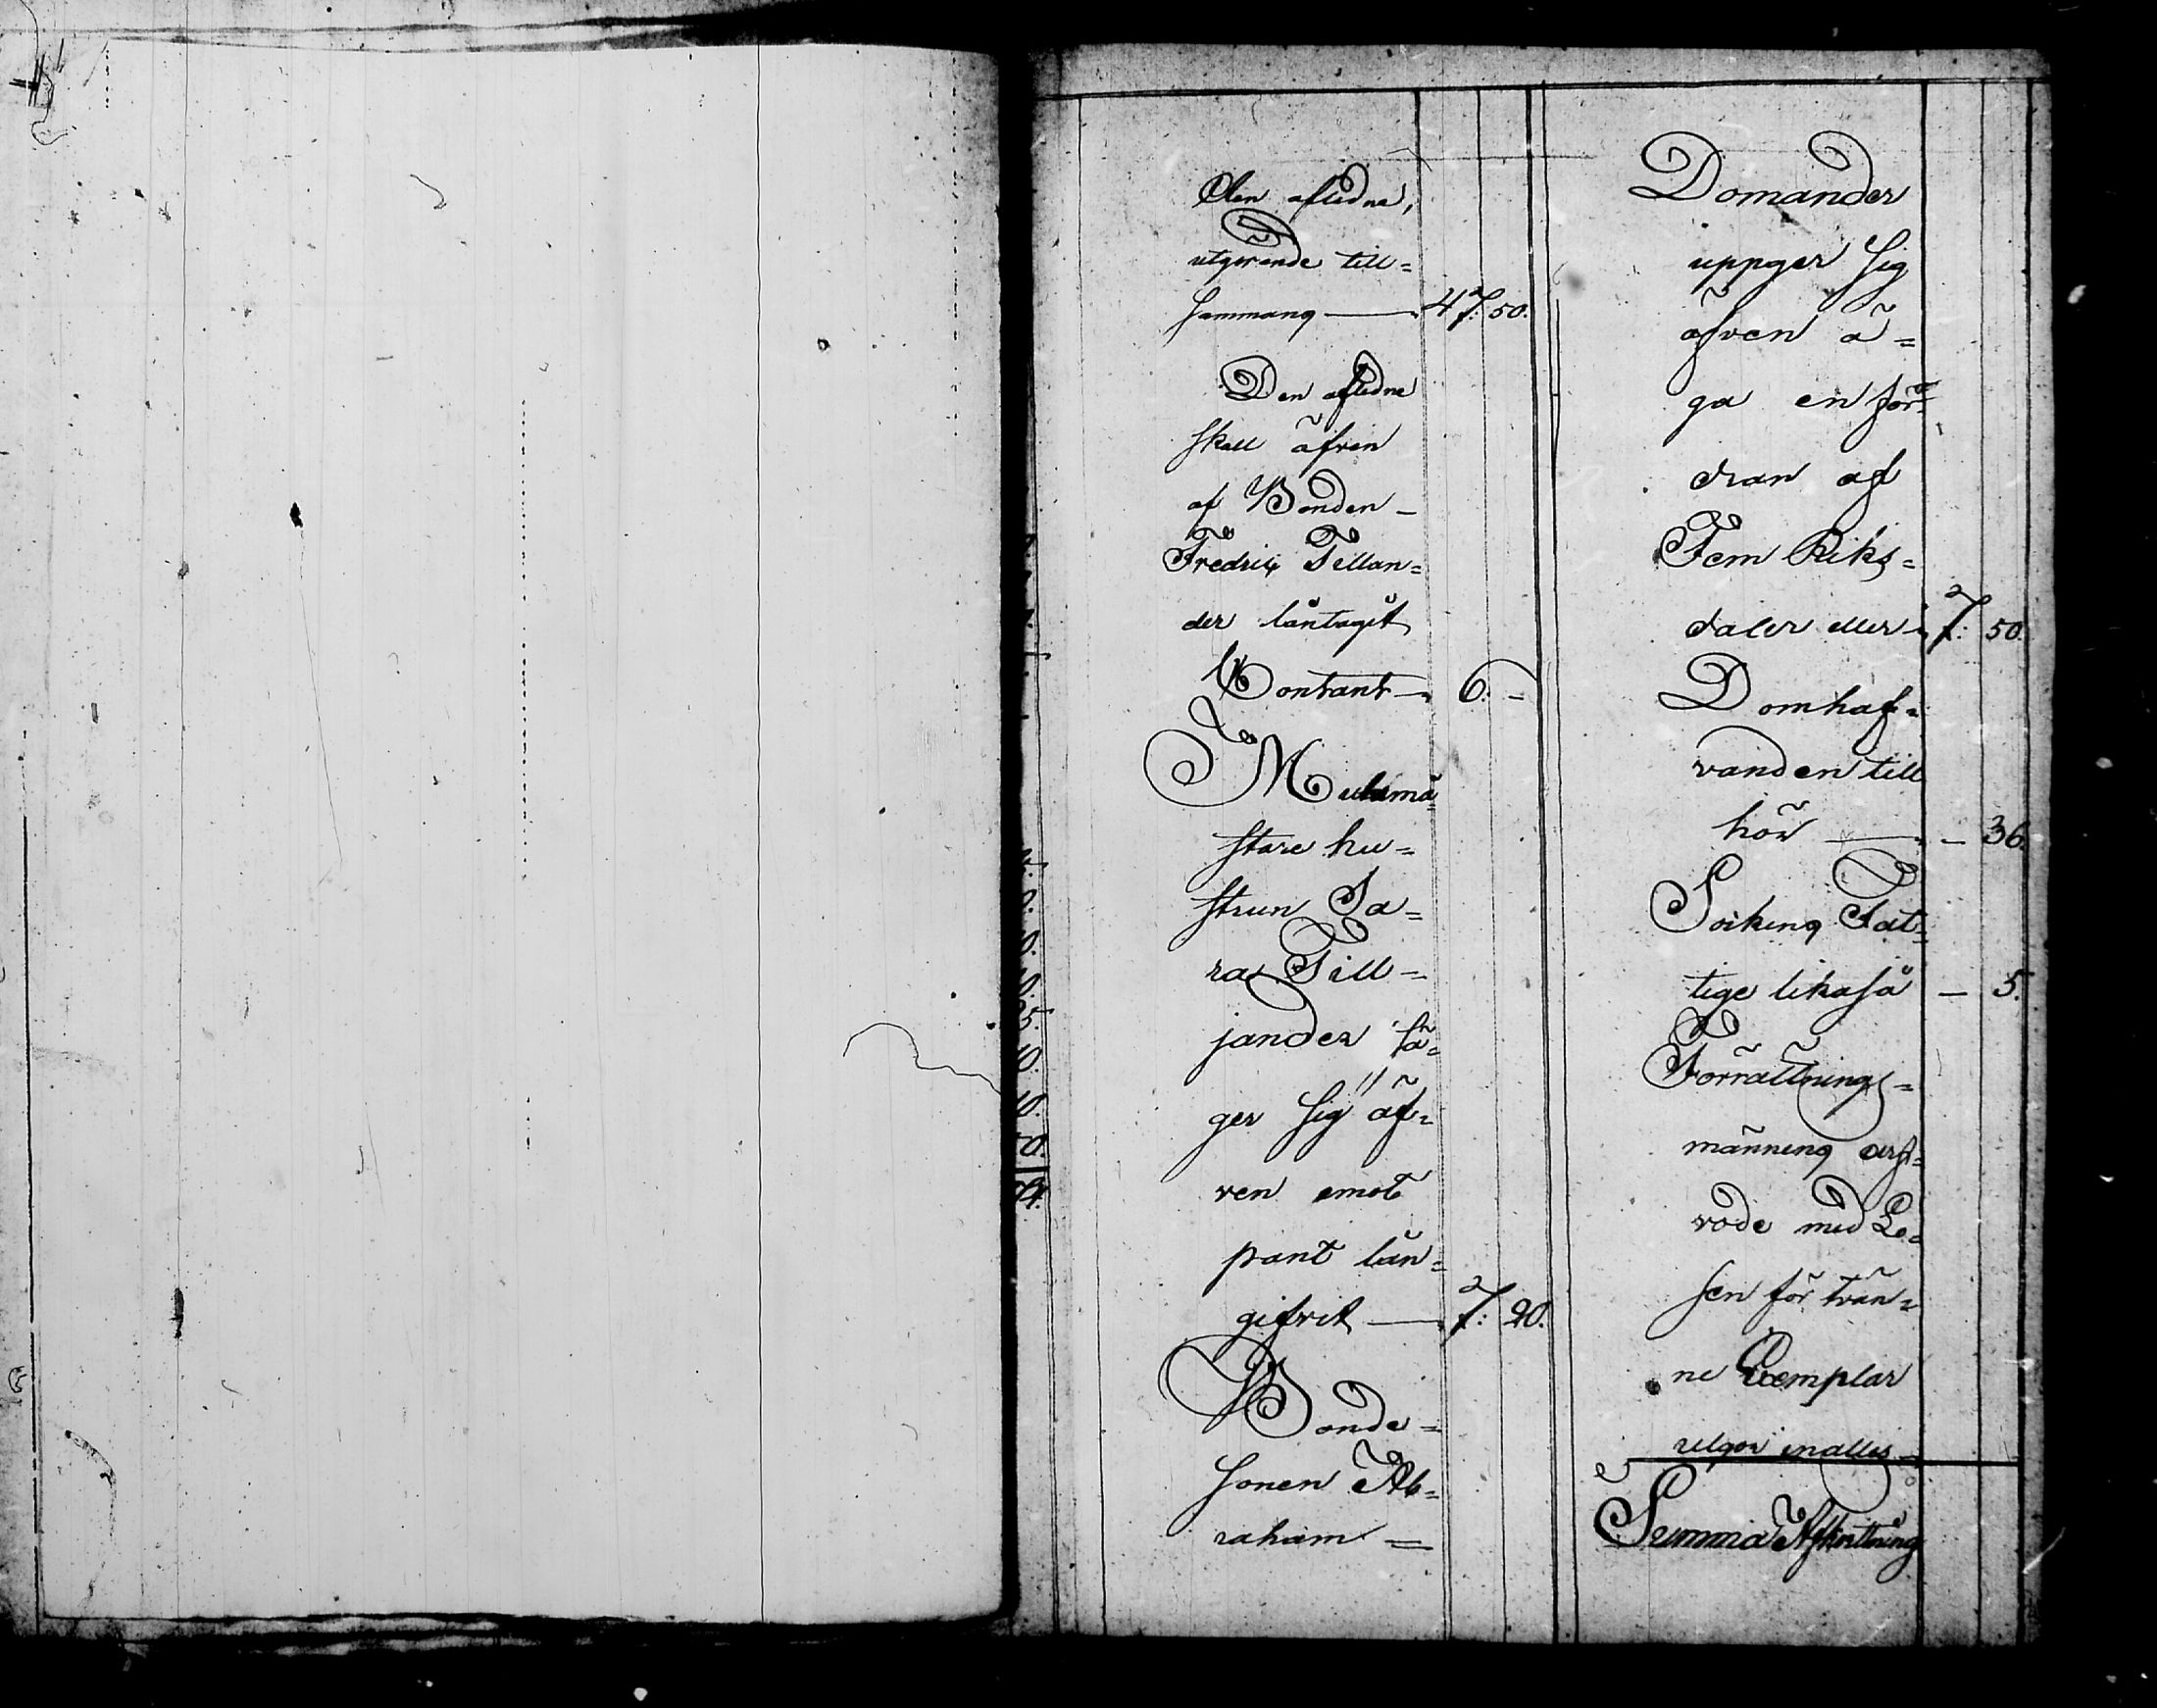 den afledne,
utgörande till=
sammans — 47: 50.
Den afledne
skall äfven
af Bonden —
Fredric Tillan=
der låntagit
Contant — 6: —
stare hu=
strun Sa=
ra Till=
jander sä=
ger sig äf=
ven emot
pant lån=
gifvit — 7: 20.
Bonde=
sonen Ab=
raham =
Domander
uppger sig
äfven ä=
ga en för=
dran af
Fem Riks=
daler eller 7: 50.
Domhaf=
vanden till
hör — — 36.
Sokens Fat=
tige likaså — 5.
Förrättnings=
männens arf=
vode med Lö=
sen för tvän=
ne Exemplar
utgör inalles —
Summa Afkortning